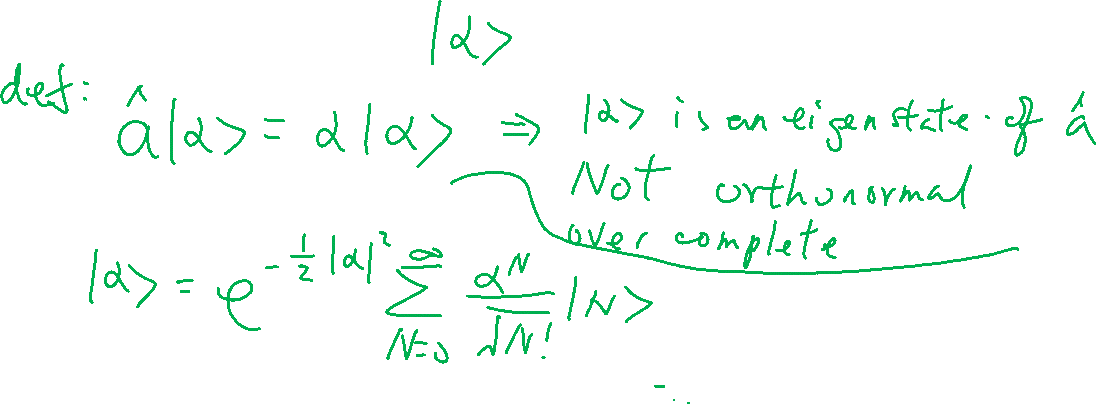 |α>
def: â|α> = α|α> ⇒ |α> is an eigenstate. of â
Not orthonormal
over complete
|α> = e^{-\frac{1}{2}|α|^2} \sum_{N=0}^{∞} \frac{α^N}{\sqrt{N!}} |N>